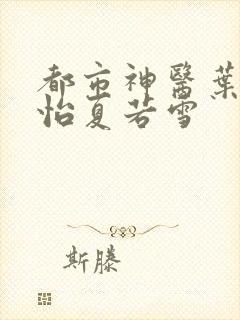 都市神醫葉
怡夏若雪
斯滕